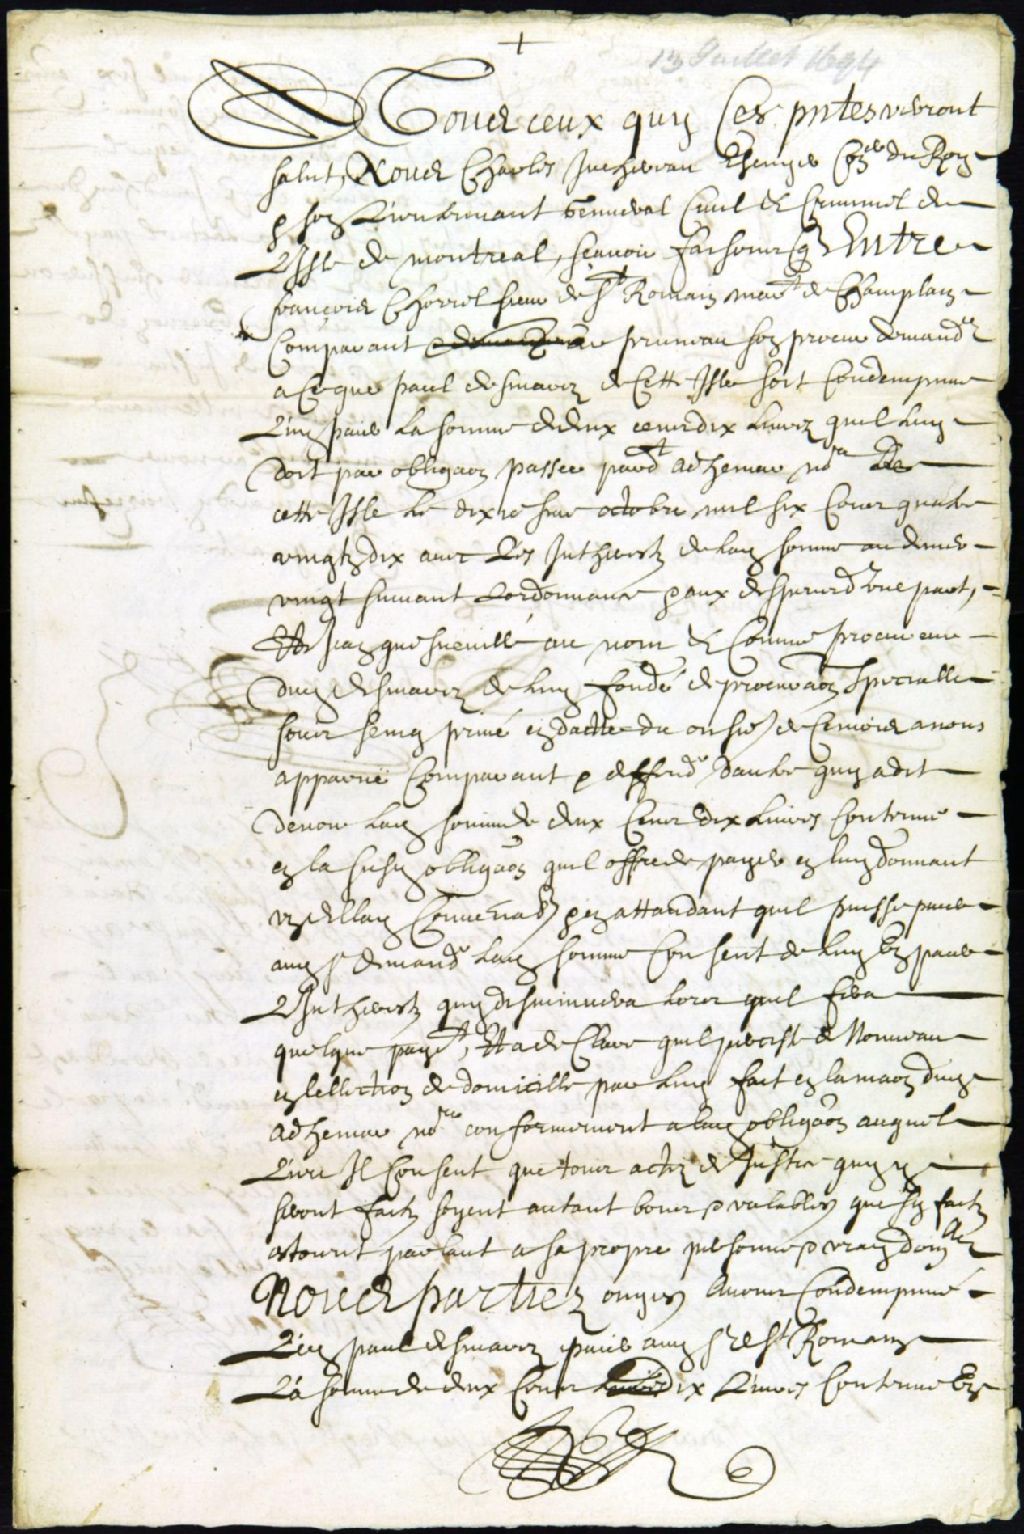 13 Juillet 1694
A Tous ceux quy Ces pntes verront
salut, Nous Charles Juchereau Escuyer Coner du Roy
& son Lieutenant general Civil & Criminel de
L'Isle de montreal, scavoir faisons q Entre
françois Chorel sieur de St Romain mart de Champlain
Comparant par pruneau son procur demandr
a Ce que paul desmarez de Cette Isle soit Condempnne
Luy paier La somme de deux cens dix livres quil Luy
doit par obligaon passee pardt adhemar nore De
cette Isle Le dixiesme octobre mil six Cens quatre
vingtz dix avec Les Intherestz de lad somme au denier
vingt suivant Lordonnance & aux despens d'une part,
Et Jean quesneville au nom & Comme procureur
dud desmarez de luy fondé de procuraon specialle
sous seing privé en datte du onsie de Ce mois a nous
apparue Comparant & deffendr dautre quy a dit
devoir lad somme de deux Cens dix Livres Contenue
en la susd obligaon quil offre de payer en luy donnant
& en attandant quil puisse paier
aud sr demandr lad somme Consent de luy En paier
L'Intherestz quy diminuera Lors quil fera
quelque payet, Et a declaré quil persiste de Nouveau
en lellection de domicille par luy fait en la maon dud
adhemar nore conformement a lad obligaon auquel
Lieu Il Consent que tous actes de Justice quy y
seront faitz soyent autant bons & valables que sy faitz
estoient parlant a sa propre personne & vray domlle
Nous partiez ouyes Avons Condempnné
Led paul desmarez paier aud sr de St Romain
La somme de deux Cens dix Livres Contenue En